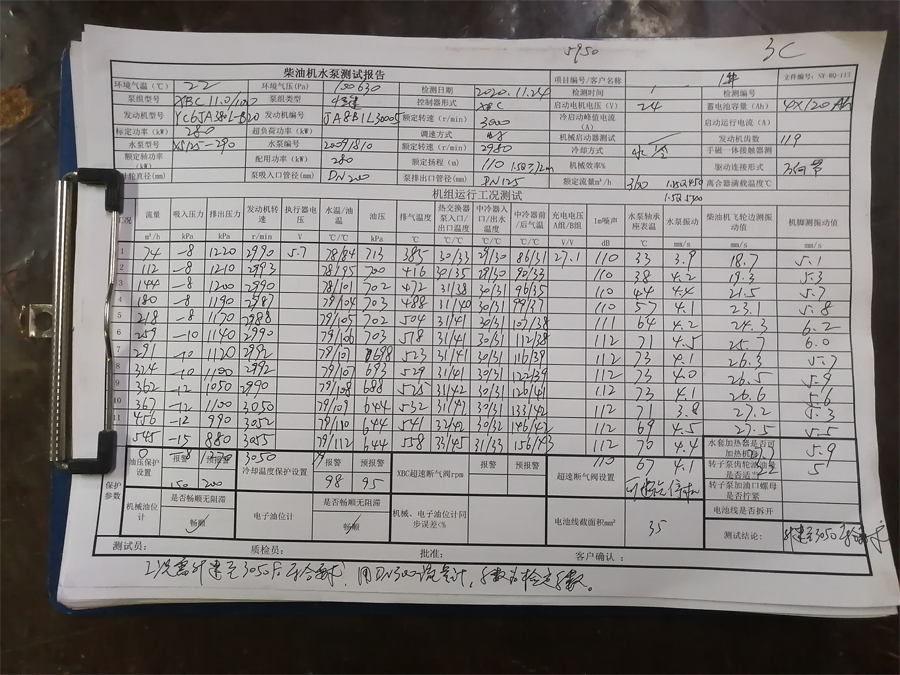 5950
3C
柴油机水泵测试报告 项目编号/客户名称 文件编号：SY-RQ-113
环境气温（℃） 22 环境气压(Pa) 100630 检测日期 2020.11.24 检测时间 检测编号
泵组型号 XBC 11.0/100 泵组类型 控制器形式 XBC 启动电机电压（V） 24 蓄电池容量（Ah）
发动机型号 YC6JA380L-B20 发动机编号 JA8B1L30005 额定转速（r/min） 3000 冷启动峰值电流（A） 启动运行电流（A）
标定功率（kW） 280 超负荷功率（kW） 调速方式 机械启动器测试 发电机齿数 119
水泵型号 XS125-290 水泵编号 20091810 额定转速（r/min） 2980 冷却方式 水冷 手磁一体接触器测
额定轴功率（kW） 配用功率（kW） 280 额定扬程（m） 110 机械效率% 驱动连接形式 万向节
叶轮直径(mm) 泵吸入口管径(mm) DN200 泵排出口管径(mm) DN125 额定流量m³/h 360 离合器满载温度℃
机组运行工况测试
工况 流量 吸入压力 排出压力 发动机转速 执行器电压 水温/油温 油压 排气温度 热交换器泵入口/出口温度 中冷器入口/出水温度 中冷器前/后气温 充电电压A组/B组 1m噪声 水泵轴承座表温 水泵振动 柴油机飞轮边测振动值 机脚测振动值
m³/h kPa kPa r/min V ℃/℃ kPa ℃ ℃/℃ ℃/℃ ℃/℃ V/V dB ℃ mm/s mm/s mm/s
1 74 -8 1220 2990 5.7 78/84 713 385 30/33 29/30 86/31 27.1 110 33 3.9 18.7 5.1
2 112 -8 1210 2993 78/95 700 416 30/35 29/30 90/33 110 38 4.2 19.3 5.3
3 144 -8 1200 2990 78/101 702 472 31/38 30/31 96/35 44 4.4 21.5 5.7
4 180 -8 1190 2987 79/104 703 488 31/40 30/31 99/37 110 57 4.1 23.1 5.8
5 218 -8 1170 2988 79/105 702 504 31/41 30/31 107/38 111 64 4.2 24.3 6.2
6 259 -10 1140 2990 79/106 703 518 31/41 30/31 112/38 112 71 4.5 25.7 6.0
7 291 -10 1120 2992 79/107 698 523 31/41 30/31 116/39 112 73 4.1 26.3 5.7
8 324 -10 1100 2992 79/107 693 529 31/41 30/31 122/39 112 73 4.0 26.5 5.9
9 362 -12 1050 2990 79/108 688 525 31/42 30/31 126/41 112 73 4.1 26.6 5.6
10 367 -12 1100 3050 79/109 644 532 31/42 30/31 133/42 112 71 3.8 27.2 5.3
11 456 -12 990 3052 79/110 644 541 32/42 30/31 146/42 112 69 4.5 27.5 5.5
545 -15 880 3055 79/112 644 558 33/45 31/33 156/43 112 70 4.4 5.9
0 -8 1270 3050 110 67 4.1 5
保护参数 油压保护设置 报警 预报警 冷却水温保护设置 报警 预报警 XBC超速断气阀rpm 报警 预报警 超速断气阀设置 水套加热器是否可加热机
150 200 98 95 转子泵齿轮滤油器是否适当
转子泵加油口螺母是否拧紧
机械油位计 是否畅顺无阻滞 电子油位计 是否畅顺无阻滞 机械、电子油位计同步误差<% 电池线截面积mm² 35 电池线是否拆开
畅顺 畅顺 测试结论：
测试员： 质检员： 批准： 客户确认：